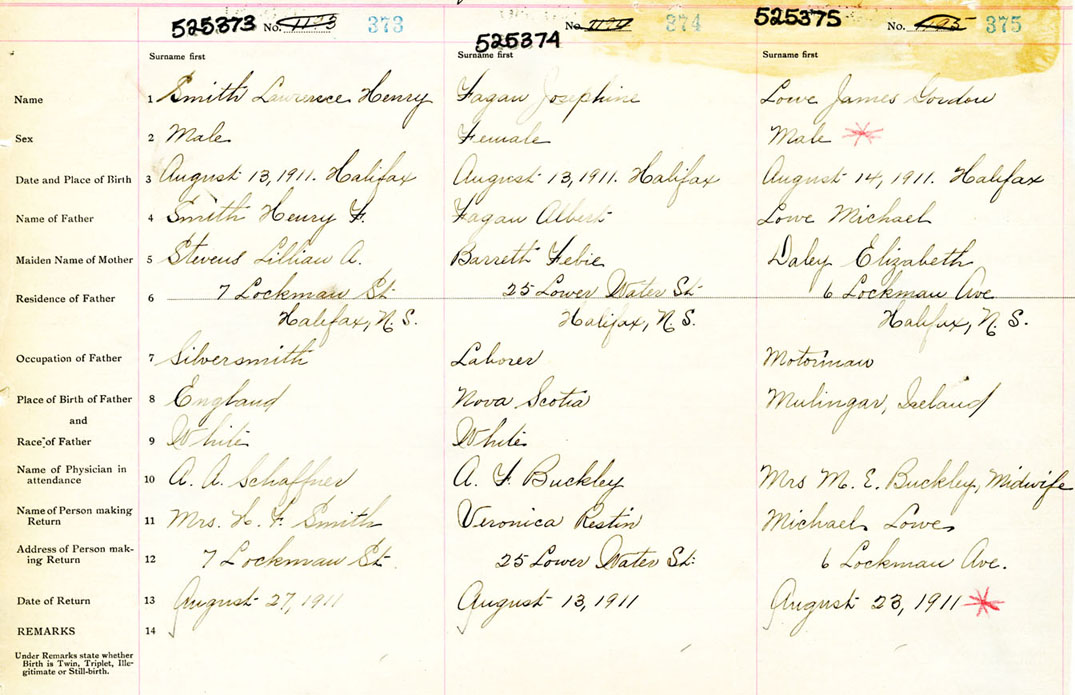 525373 No. 373 525374 No. 374 525375 No. 375
Surname first Surname first Surname first
Name 1 Smith Lawrence Henry Fagan Josephine Lowe James Gordon
Sex 2 Male Female Male
Date and Place of Birth 3 August 13, 1911. Halifax August 13, 1911. Halifax August 14, 1911. Halifax
Name of Father 4 Smith Henry F. Fagan Albert Lowe Michael
Maiden Name of Mother 5 Stevens Lillian A. Barrett Febie Daley Elizabeth
Residence of Father 6 7 Lockman St. 25 Lower Water St. 6 Lockman Ave
Halifax, N.S. Halifax, N.S. Halifax, N.S.
Occupation of Father 7 Silversmith Laborer Motorman
Place of Birth of Father 8 England Nova Scotia Mulingar, Ireland
and
Race of Father 9 White White
Name of Physician in
attendance 10 A. A. Schaffner A. F. Buckley Mrs M. E. Buckley, Midwife
Name of Person making
Return 11 Mrs. H. F. Smith Veronica Michael Lowe
Address of Person mak-
ing Return 12 7 Lockman St. 25 Lower Water St. 6 Lockman Ave.
Date of Return 13 August 27, 1911 August 13, 1911 August 23, 1911
REMARKS 14
Under Remarks state whether
Birth is Twin, Triplet, Ille-
gitimate or Still-birth.